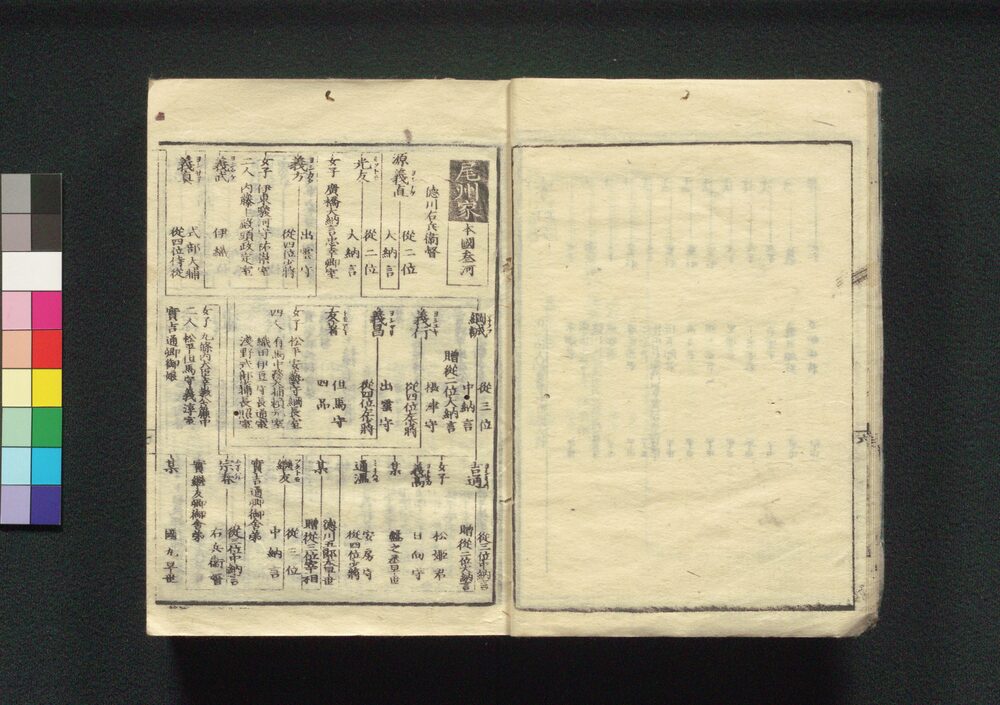 尾州家
本國叁河
源義直
德川右兵衛督
從二位
大納言
光友
從二位
大納言
女子 廣橋大納言忠幸卿室
義方
出雲守
從四位少將
女子 伊東駿河守祐崇室
二人 内藤
頭政定室
義武
伊織
義眞
式部大輔
從四位侍從
綱誠
從三位
中納言
贈從二位大納言
義行
攝津守
從四位左少將
義昌
出雲守
從四位左少將
友著
但馬守
四品
女子 松平安藝守綱長室
四人
織田伊豆守長
室
淺野式部
輔長照室
女子 九條内大臣
二人 松平但馬守義淳室
實吉通卿御娘
吉通
從三位中納言
贈從二位大納言
女子
松姫君
義
日向守
某
之丞早世
通温
安房守
從四位少將
某
德川五郎太早世
贈從三位宰相
繼友
從三位
中納言
實吉通卿御舎弟
宗春
從三位中納言
右兵衛督
實繼友卿御舎弟
某
國丸早世